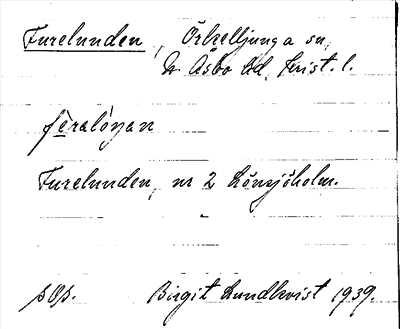 Furelunden, Örkelljunga sn,
N. Åsbo hd, Krist. l.
Furelunden, nr 2 Lönsjöholm.
sOp. Birgit Lundkvist 1939.